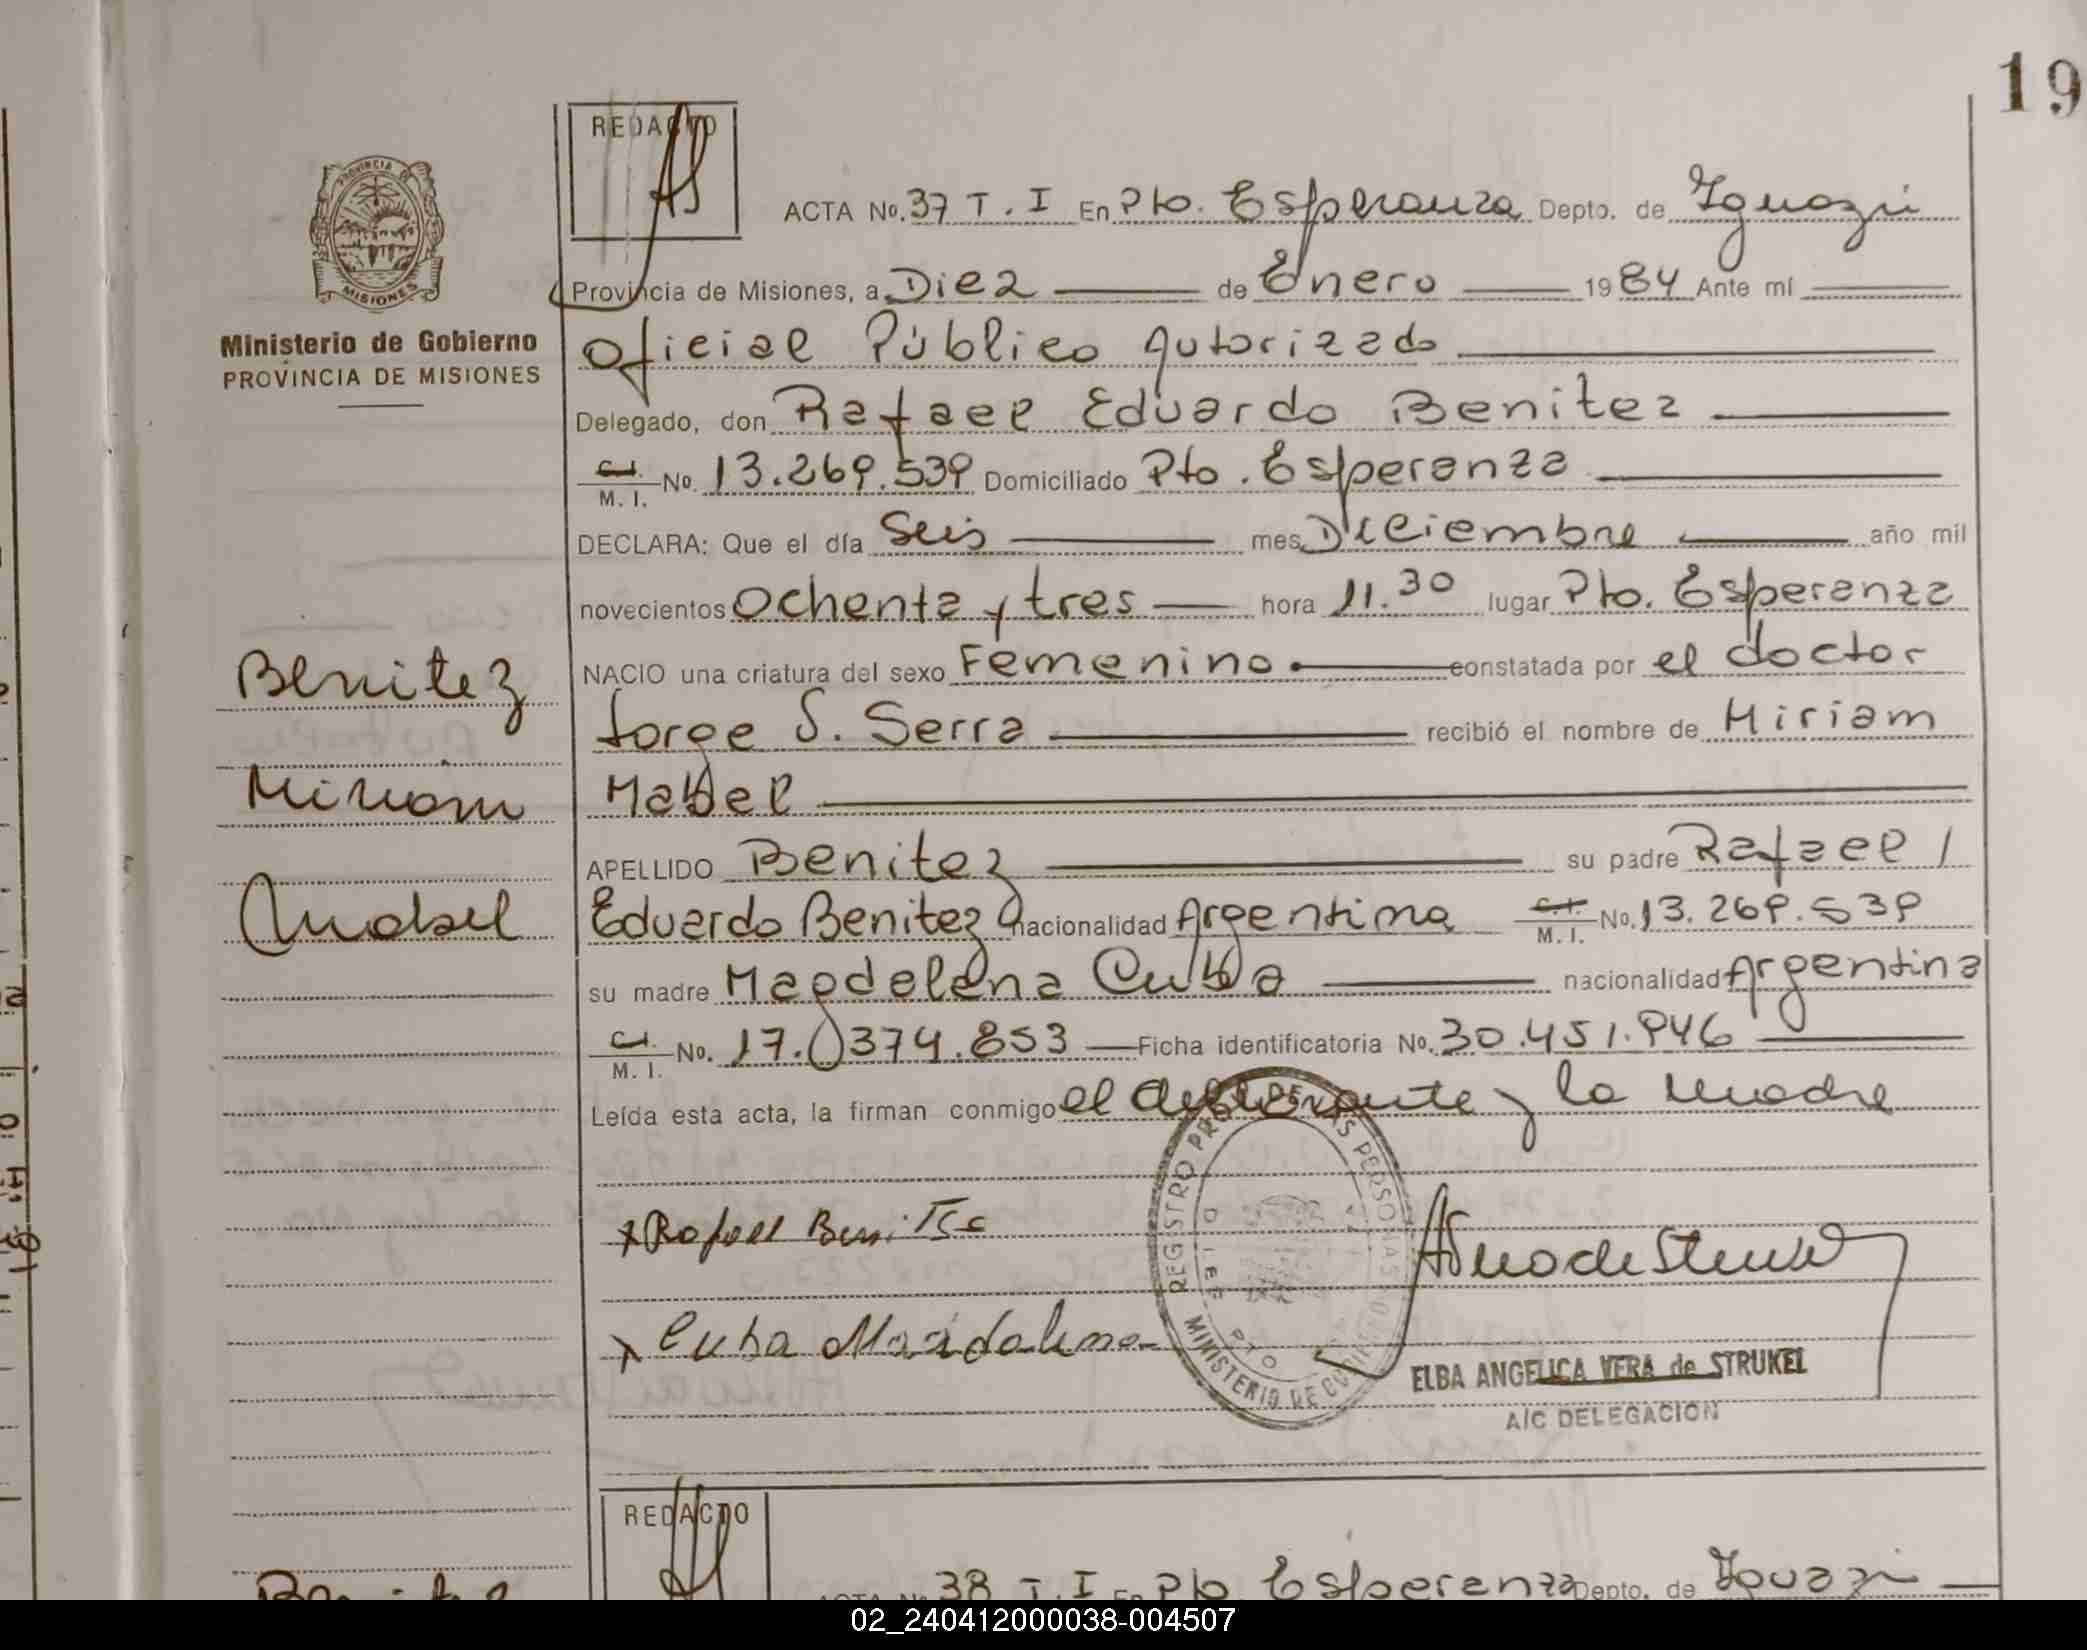 19
REDACTO
PROVINCIA DE
MISIONES
Ministerio de Gobierno
PROVINCIA DE MISIONES
ACTA No. 37 T. I En Pto. Esperanza Depto. de Iguazú
Provincia de Misiones, a Diez de Enero 1984 Ante mí
Oficial Público Autorizado
Delegado, don Rafael Eduardo Benitez
C.I. M. I. No. 13.269.539 Domiciliado Pto. Esperanza
DECLARA: Que el día Seis mes Diciembre año mil
novecientos Ochenta y tres hora 11.30 lugar Pto. Esperanza
NACIO una criatura del sexo Femenino constatada por el doctor
Jorge S. Serra recibió el nombre de Miriam
Mabel
APELLIDO Benitez su padre Rafael /
Eduardo Benitez nacionalidad Argentina C.I. M. I. No. 13.269.539
su madre Magdalena Cuba nacionalidad Argentina
C.I. M. I. No. 17.0374.853 Ficha identificatoria No. 30.451.946
Leída esta acta, la firman conmigo el declarante y la madre
Benitez
Miriam
Mabel
x Rafael Benitez
x Cuba Magdalena
REGISTRO PROV. DE LAS PERSONAS
MINISTERIO DE GOBIERNO
PTO
ELBA ANGELICA VERA de STRUKEL
A/C DELEGACION
REDACTO
ACTA No. 38 T. I En Pto. Esperanza Depto. de Iguazú
Benitez
02_240412000038-004507